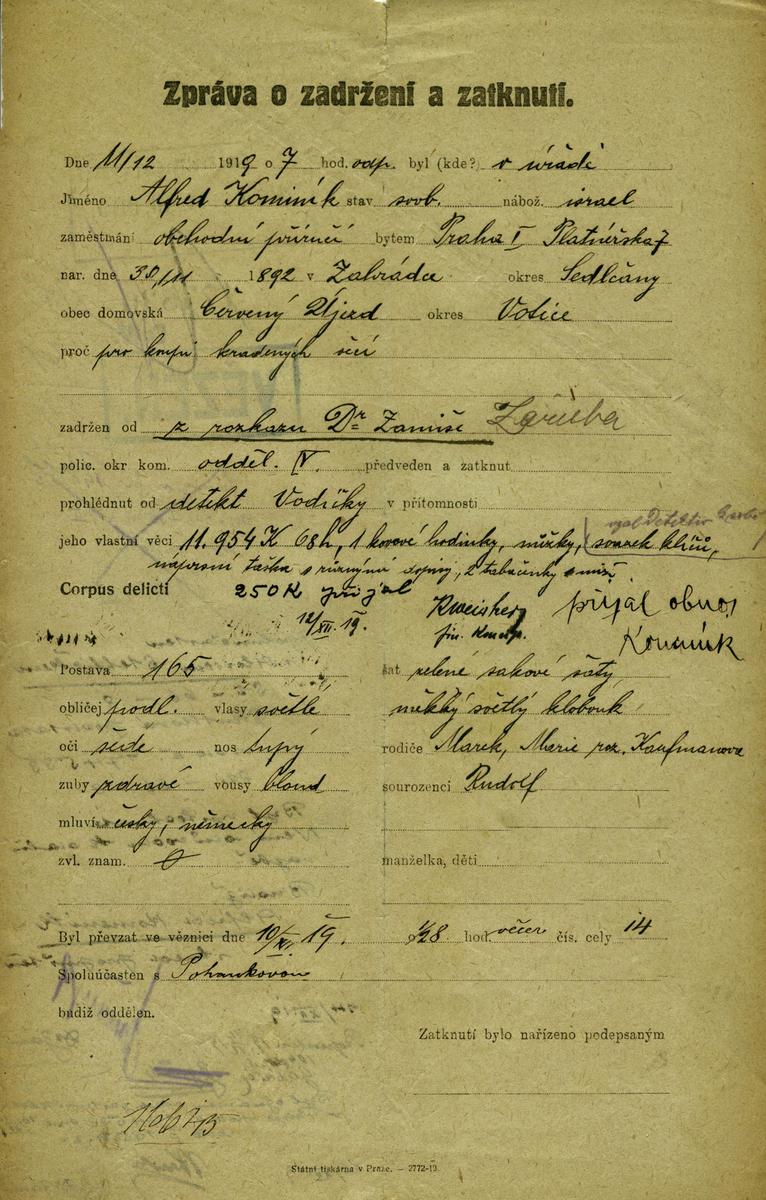 Zpráva o zadržení a zatknutí.
Dne 11/12 1919 o 7 hod. odp. byl (kde?) v úřadě
Jméno Alfred Kominík stav svob. nábož. israel
zaměstnání obchodní příručí bytem Praha I Platnéřská 7
nar. dne 30/11 1892 v Zahrádce okres Sedlčany
obec domovská Červený Újezd okres Votice
proč pro koupi kradených věcí
zadržen od z rozkazu Dr Zamiše Záruba
polic. okr kom. odděl. IV. předveden a zatknut
prohlédnut od detekt Vodičky v přítomnosti
vzal Detektiv
jeho vlastní věci 11.954 K 68 h, 1 kovové hodinky, nůžky, svazek klíčů,
náprsní taška s různými dopisy, 2 tabatěrky
Corpus delicti 250 K přijal
12/XII. 19. přijal obnos
Kominík
Postava 165 šat zelené sakové šaty,
obličej podl. vlasy světlé měkký světlý klobouk
oči šedé nos tupý rodiče Marek, Marie roz. Kaufmanova
zuby zdravé vousy blond sourozenci Rudolf
mluví česky, německy
zvl. znam. 0 manželka, děti
Byl převzat ve věznici dne 10/XI. 19. o ½8 hod. večer čís. cely 14
Spoluúčasten s Pohankovou
budiž oddělen.
Zatknutí bylo nařízeno podepsaným
Státní tiskárna v Praze. — 2772-19.